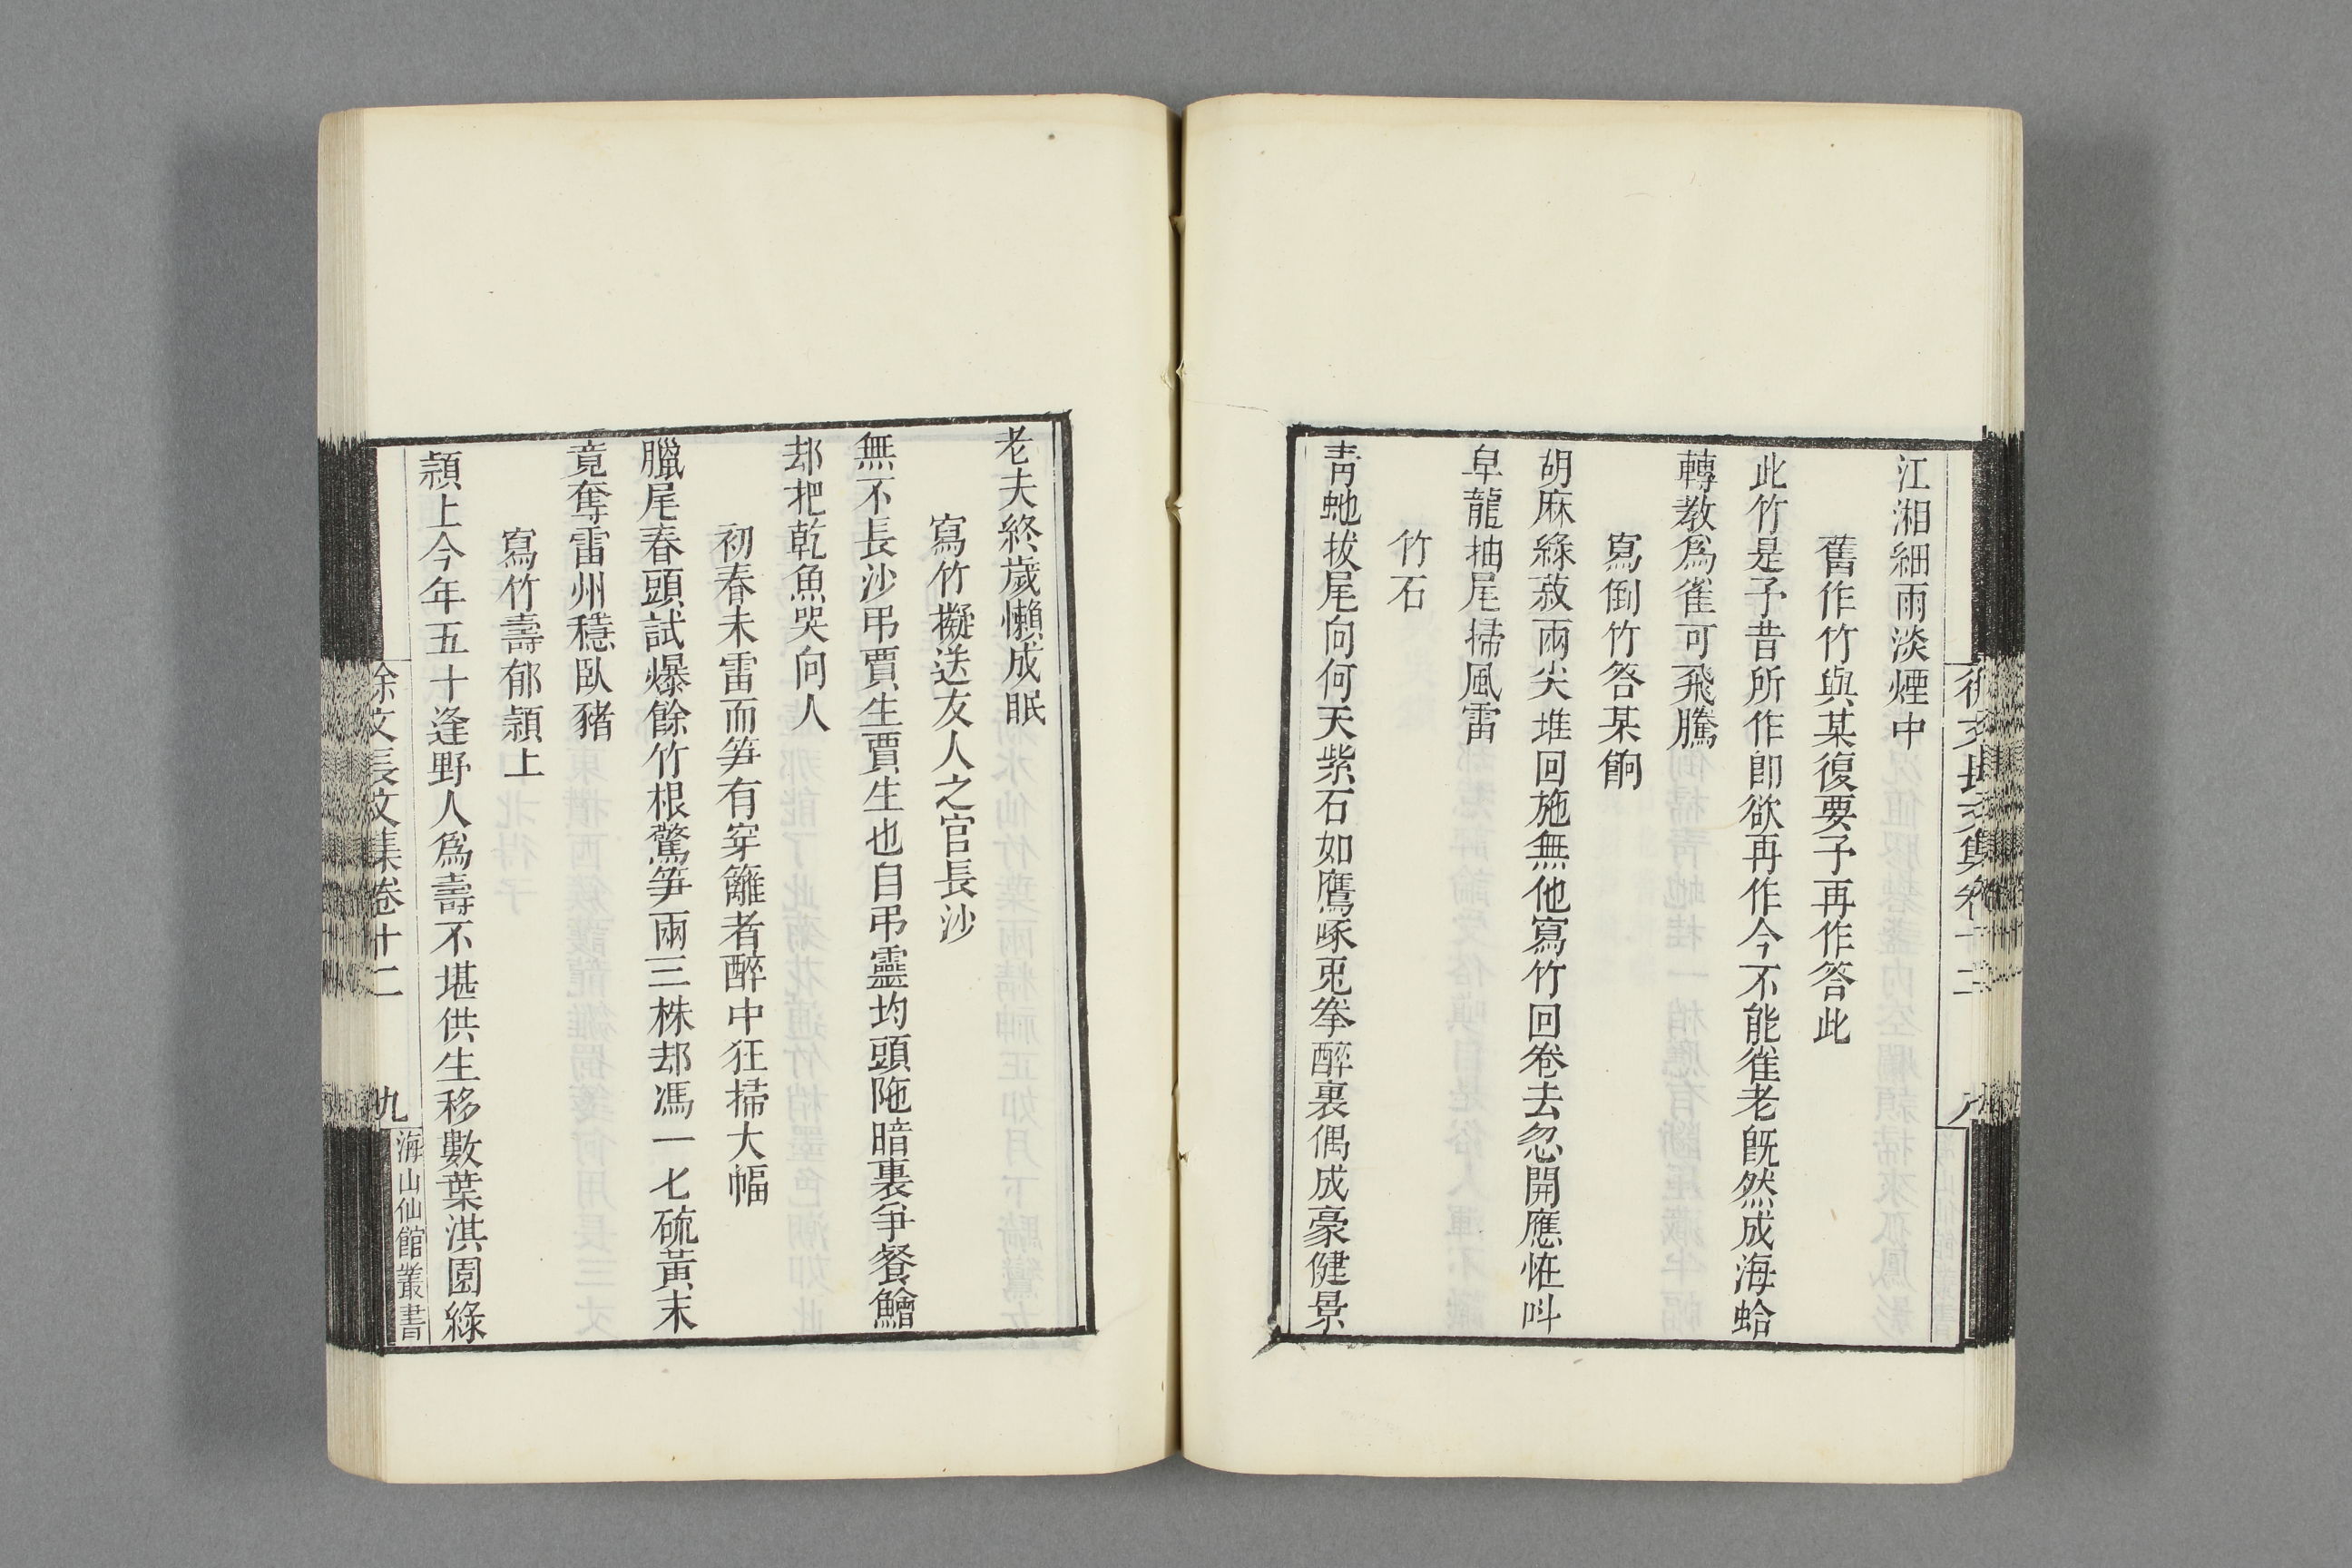 江湘細雨淡煙中
舊作竹與某復要予再作答此
此竹是予昔所作即欲再作今不能雀老旣然成海蛤
轉教爲雀可飛騰
寫倒竹答某餉
胡麻綠菽兩尖堆回施無他寫竹回卷去忽開應恠呌
皁龍抽尾掃風雷
竹石
靑虵拔尾向何天紫石如鷹啄兎拳醉裏偶成豪健景
老夫終歲懶成眠
寫竹擬送友人之官長沙
無不長沙弔賈生賈生也自弔靈均頭陁暗裏爭餐鱠
却把乾魚哭向人
初春未雷而笋有穿籬者醉中狂掃大幅
臘尾春頭試爆餘竹根驚笋兩三株却馮一七硫黃末
竟奪雷州穩臥豬
寫竹壽郁潁上
潁上今年五十逢野人爲壽不堪供生移數葉淇園綠
徐文長文集卷十二
九
海山仙館叢書